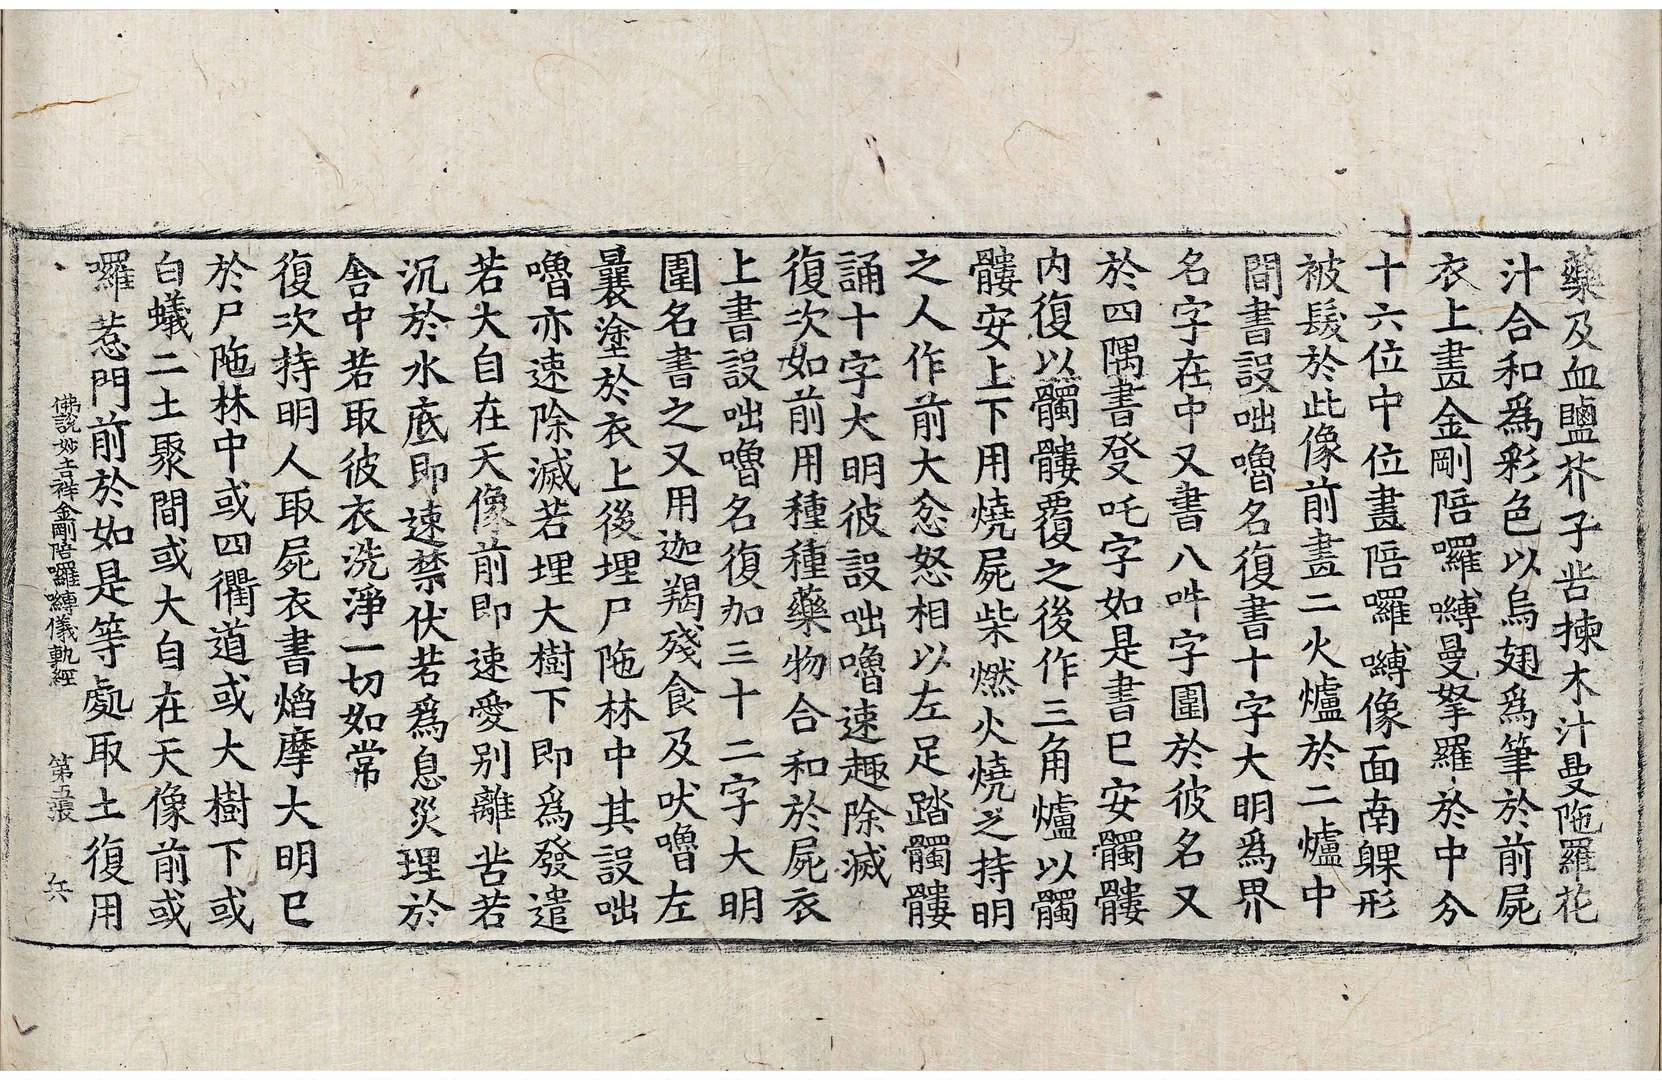 藥及血鹽芥子苦揀木汁曼陁羅花
汁合和爲彩色以烏翅爲筆於前屍
衣上畫金剛陪囉嚩曼拏羅於中分
十六位中位畫陪囉嚩像面南躶形
被髮於此像前畫二火爐於二爐中
間書設咄嚕名復書十字大明爲界
名字在中又書八吽字圍於彼名又
於四隅書登吒字如是書已安髑髏
内復以髑髏覆之後作三角爐以髑
髏安上下用燒屍柴燃火燒之持明
之人作前大忿怒相以左足踏髑髏
誦十字大明彼設咄嚕速趣除滅
復次如前用種種藥物合和於屍衣
上書設咄嚕名復加三十二字大明
圍名書之又用迦羯殘食及吠嚕左
曩塗於衣上後埋尸陁林中其設咄
嚕亦速除滅若埋大樹下即爲發遣
若大自在天像前即速愛别離苦若
沉於水底即速禁伏若爲息災理於
舍中若取彼衣洗淨一切如常
復次持明人取屍衣書焰摩大明已
於尸陁林中或四衢道或大樹下或
白蟻二土聚間或大自在天像前或
囉惹門前於如是等處取土復用
佛說妙吉祥金剛陪囉嚩儀軌經 第五張 兵